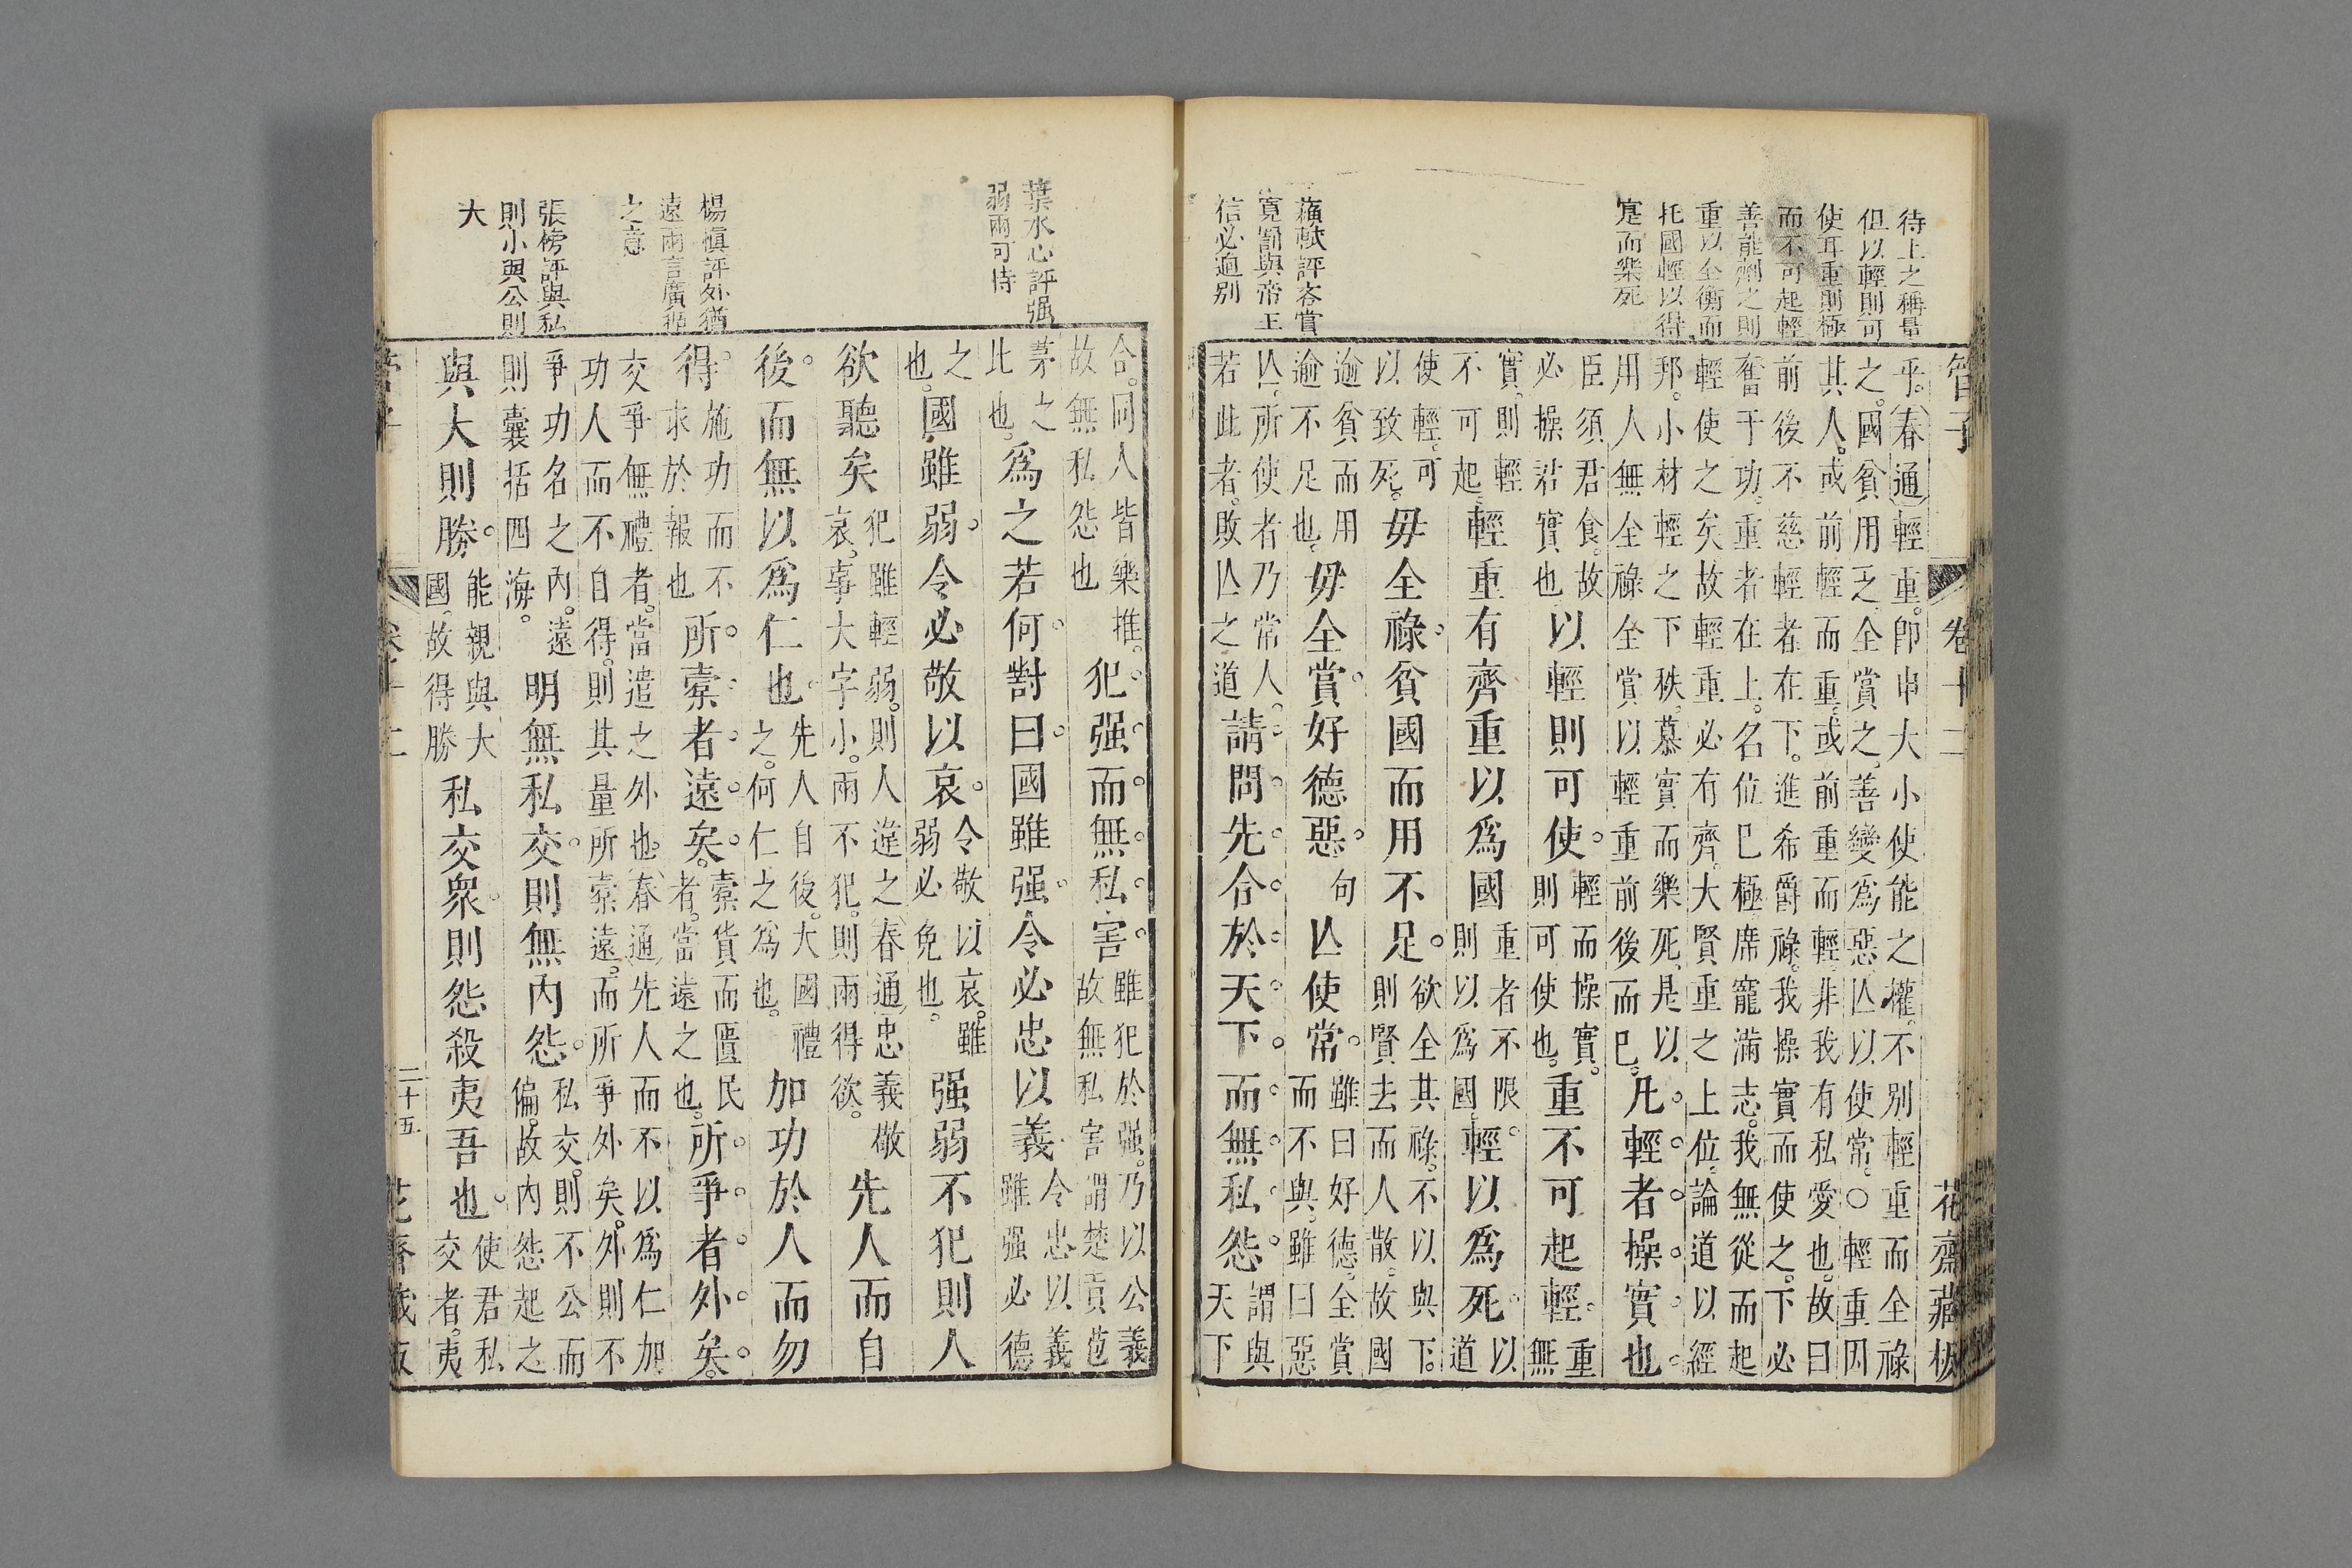 待上之稱量
但以輕則可
使耳重則極
而不可起輕
善能劑之則
重以全衡而
托國輕以得
寔而樂死
蘇軾評吝賞
寛罰與帝王
信必逈别
管子 卷十二 花齋藏板
乎。(春通)輕重。卽申大小使能之權。不别輕重而全祿
之。國貧用乏。全賞之。善變爲惡。亾以使常。○輕重因
其人。或前輕而重。或前重而輕。非我有私愛也。故曰
前後不慈輕者在下。進希爵祿。我操實而使之。下必
奮于功。重者在上。名位已極。席寵滿志。我無從而起
輕使之矣故輕重必有齊。大賢重之上位。論道以經
邦。小材輕之下秩。慕實而樂死。是以
用人無全祿全賞以輕重前後而已。凡輕者。操實也。
臣須君食。故必操君實也以輕則可使。輕而操實。則可使也。重不可起輕。重無
實。則輕不可起。輕重有齊重以爲國重者不限則以爲國。輕以爲死。以道
使輕。可以致死。毋全祿。貧國而用不足。欲全其祿。不以與下。則賢去而人散。故國
逾貧而用逾不足也。毋全賞。好德惡。句亾使常。雖曰好德。全賞而不與。雖曰惡
亾。所使者乃常人。若此者。敗亾之道請問。先合於天下。而無私怨。謂與天下
葉水心評强
弱兩可恃
楊愼評外猶
遠兩言廣循
之意
張榜評與私
則小與公則
大
合。同人皆樂推。故無私怨也犯强而無私害。雖犯於强。乃以公義故無私害謂楚貢苞
茅之此也。爲之若何。對曰。國雖强。令必忠以義令忠以義雖强必德
之也。國雖弱。令必敬以哀。令敬以哀。雖弱必免也。强弱不犯則人
欲聽矣犯雖輕弱。則人違之(春通)忠義敬哀。事大字小。兩不犯。則兩得欲。先人而自
後。而無以爲仁也。先人自後。大國禮之。何仁之爲也。加功於人而勿
得。施功而不求於報也所槖者遠矣。槖貨而匱民者。當遠之也。所爭者外矣。
交爭無禮者。當遣之外也。(春通)先人而不以爲仁加
功人而不自得。則其量所槖遠。而所爭外矣。外則不
爭功名之內。遠則囊括四海。明無私交。則無內怨。私交。則不公而偏。故內怨起之
與大則勝。能親與大國。故得勝私交衆。則怨殺夷吾也。使君私交者。夷
二十五